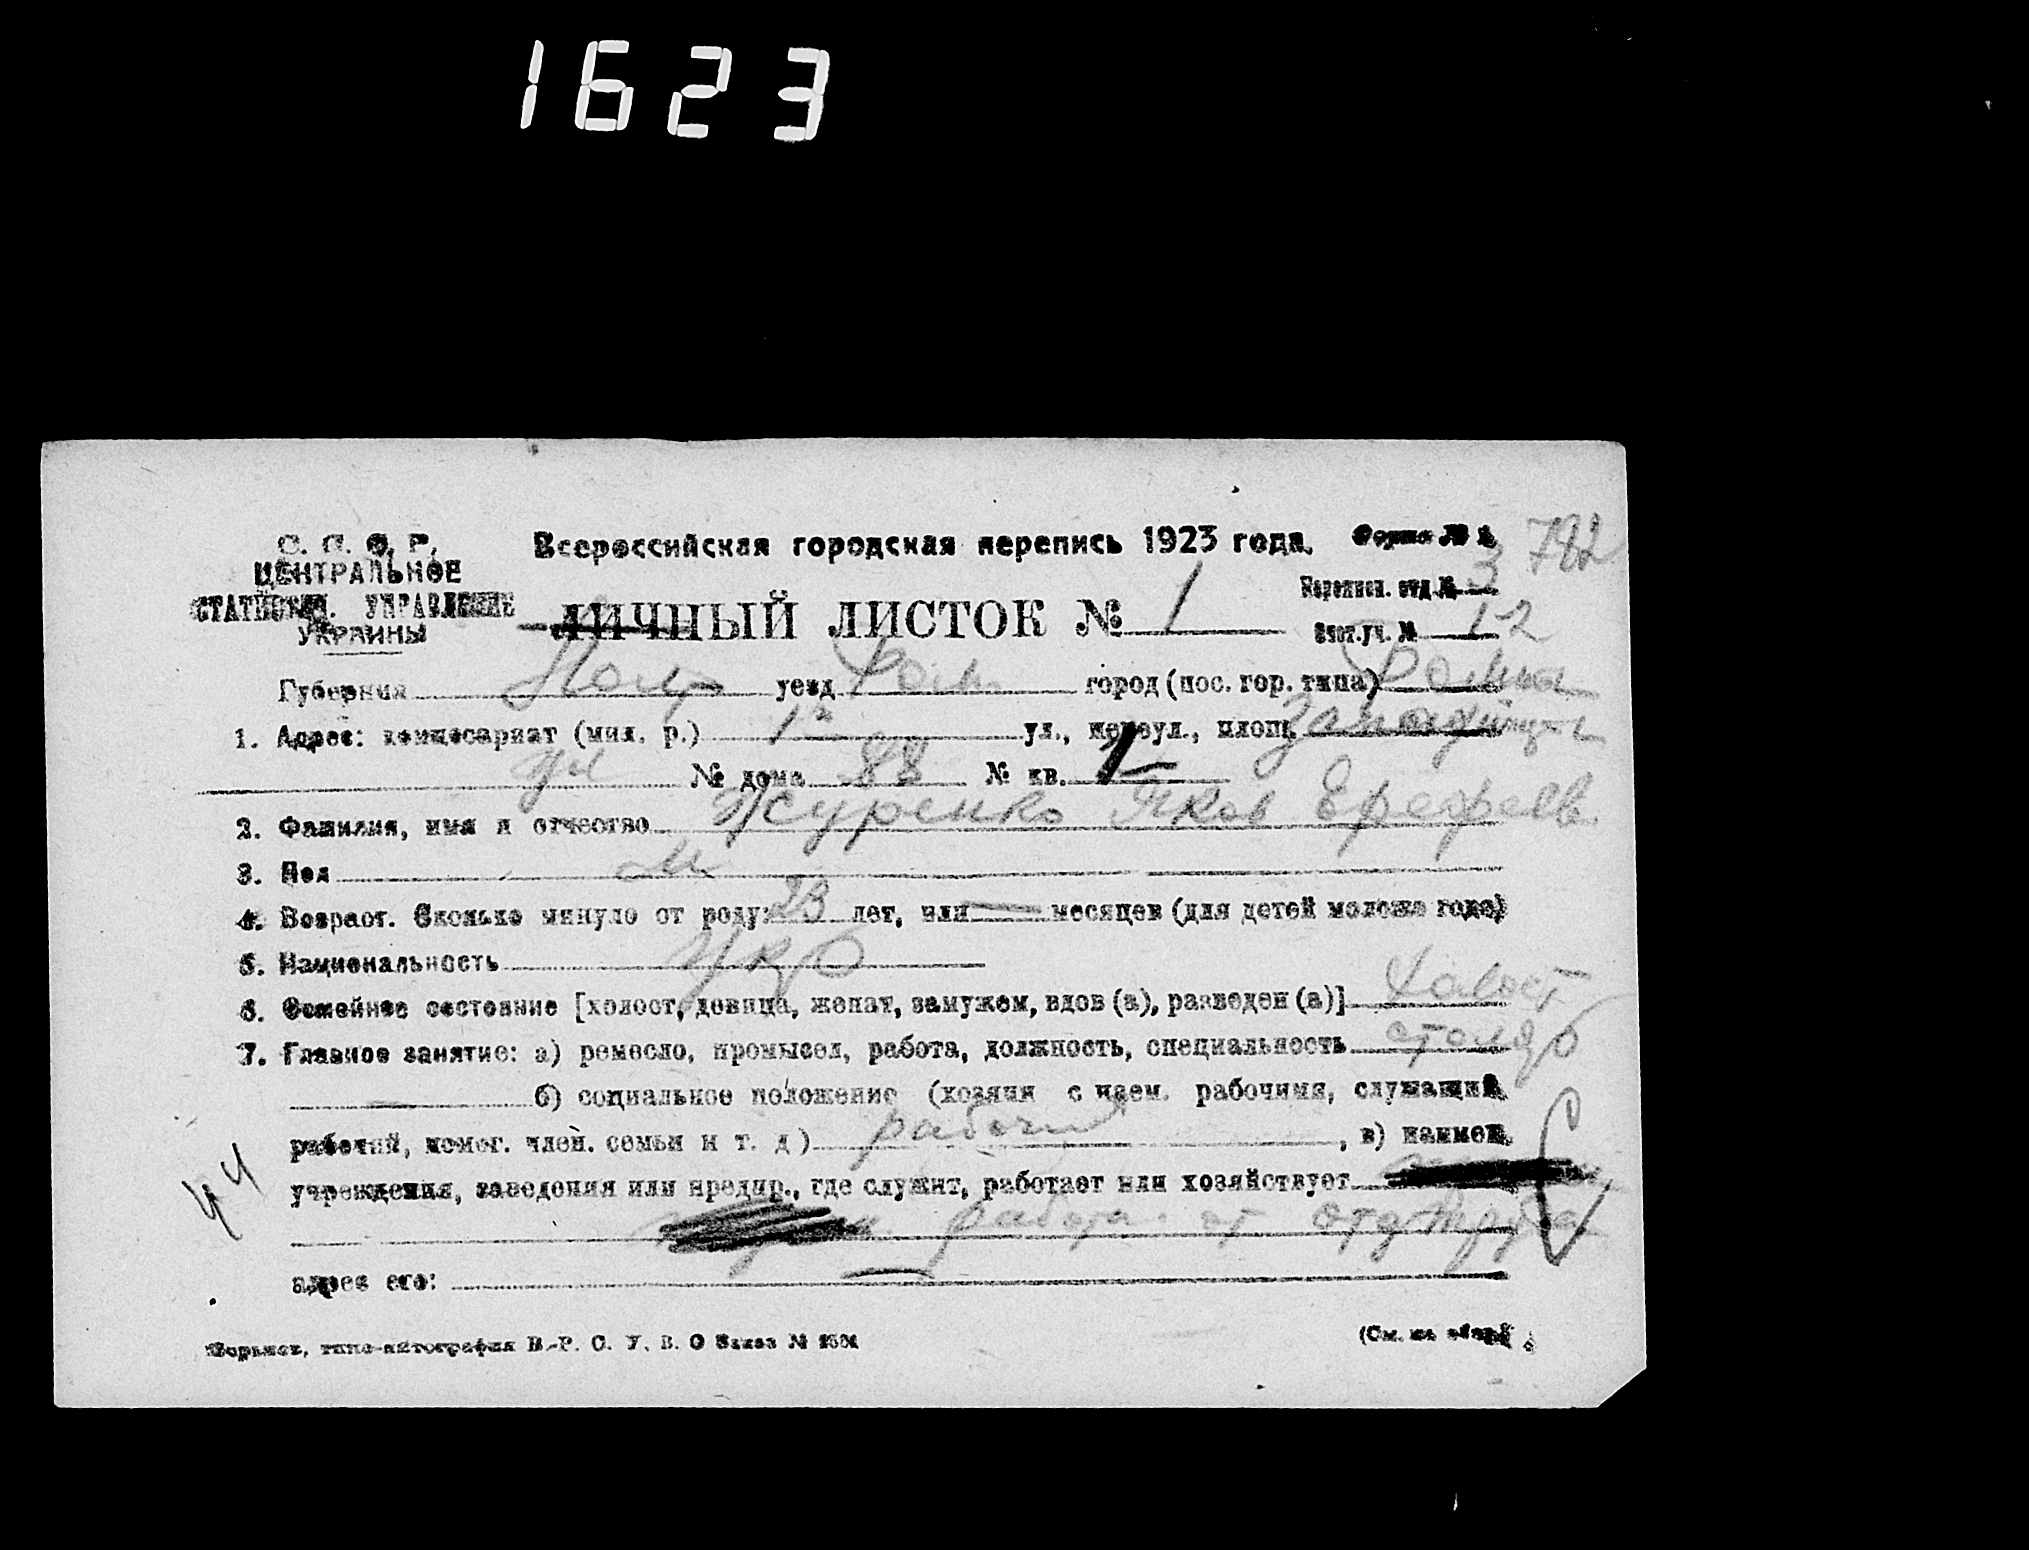 1623
С. С. С. Р.
ЦЕНТРАЛЬНОЕ
СТАТИСТИЧ. УПРАВЛЕНИЕ
УКРАИНЫ
Всероссийская городская перепись 1923 года.
Форма № 1.
782
ЛИЧНЫЙ ЛИСТОК № 1
Переписн. отд. № 3
Счет. уч. № 12
Губерния Полт уезд Ром. город (пос. гор. типа) Ромны
1. Адрес: комиссариат (мил. р.) 1й ул., переул., площ.
№ дома 88 № кв. 1
2. Фамилия, имя и отчество Журенко Яков Ерефеев.
3. Пол м
4. Возраст. Сколько минуло от роду: 23 лет, или — месяцев (для детей моложе года)
5. Национальность Укр
6. Семейное состояние [холост, девица, женат, замужем, вдов (а), разведен (а)] холост
7. Главное занятие: а) ремесло, промысел, работа, должность, специальность столяр
б) социальное положение (хозяин с наем. рабочими, служащий,
рабочий, помог. член. семьи и т. д) рабочий , в) наимен.
учреждения, заведения или предпр., где служит, работает или хозяйствует
работа от отд труда
44
адрес его: —
Харьков, типо-литография В.-Р. С. У. В. О Заказ №
(См. на обор.)